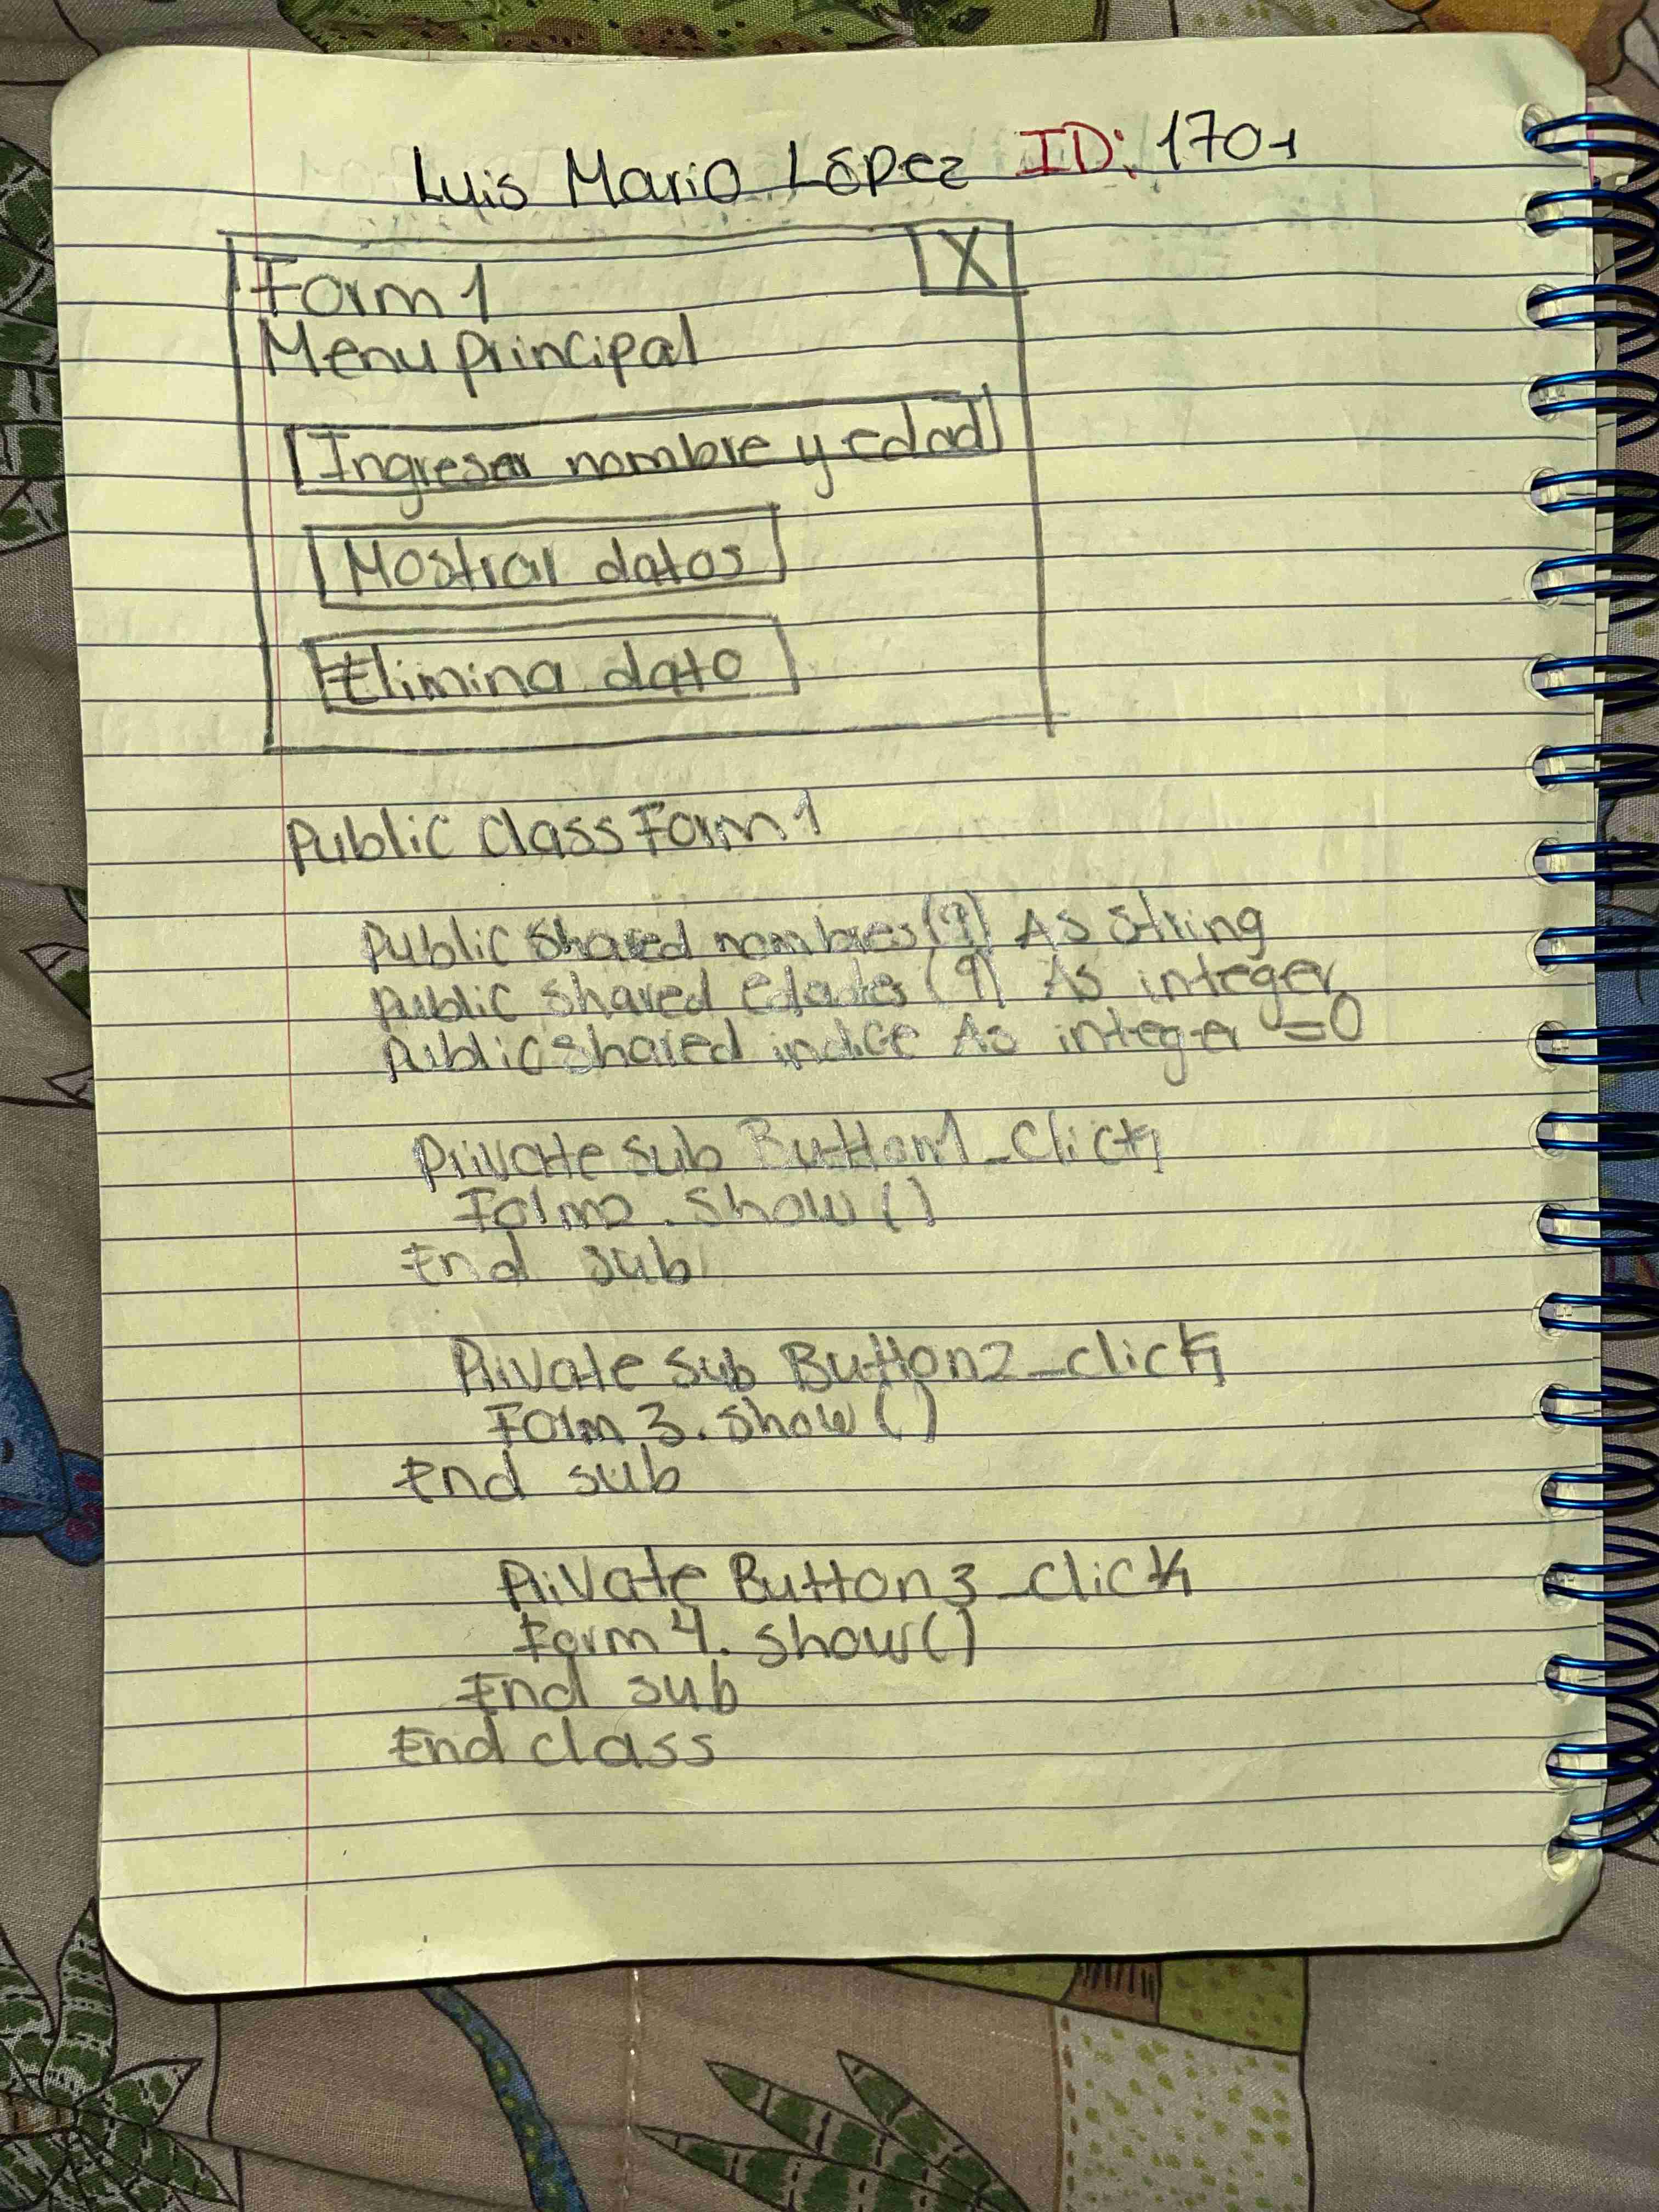 Luis Mario López ID: 1701
Form 1 X
Menu principal
Ingresar nombre y edad
Mostrar datos
Elimina dato
Public Class Form 1
Public Shared nombres (9) As String
Public Shared edades (9) As integer
Public Shared indice As integer =0
Private sub Button1_Click
Form2.Show ()
End sub
Private sub Button2_click
Form 3. Show ()
End sub
Private Button3_click
Form 4. show ()
End sub
End class